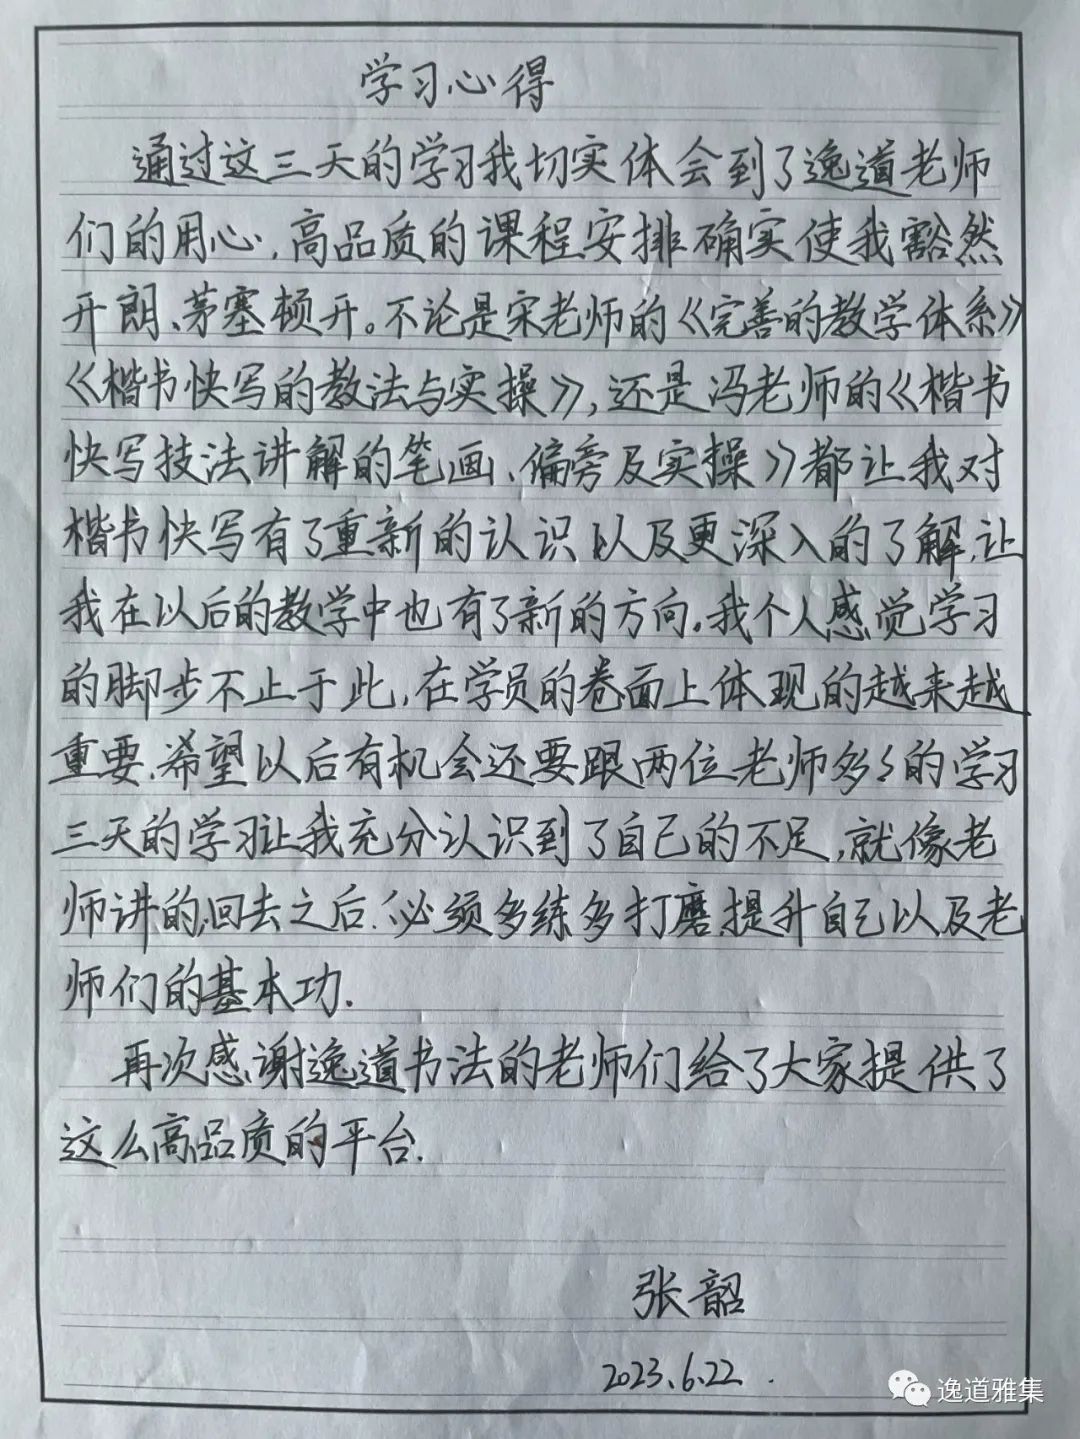 学习心得
通过这三天的学习我切实体会到了逸道老师
们的用心,高品质的课程安排确实使我豁然
开朗、茅塞顿开。不论是宋老师的《完善的教学体系》
《楷书快写的教法与实操》,还是冯老师的《楷书
快写技法讲解的笔画、偏旁及实操》都让我对
楷书快写有了重新的认识以及更深入的了解,让
我在以后的教学中也有了新的方向。我个人感觉学习
的脚步不止于此,在学员的卷面上体现的越来越
重要.希望以后有机会还要跟两位老师多々的学习
三天的学习让我充分认识到了自己的不足,就像老
师讲的,回去之后.必须多练多打磨.提升自己以及老
师们的基本功.
再次感谢逸道书法的老师们给了大家提供了
这么高品质的平台.
张韶
2023.6.22.
逸道雅集